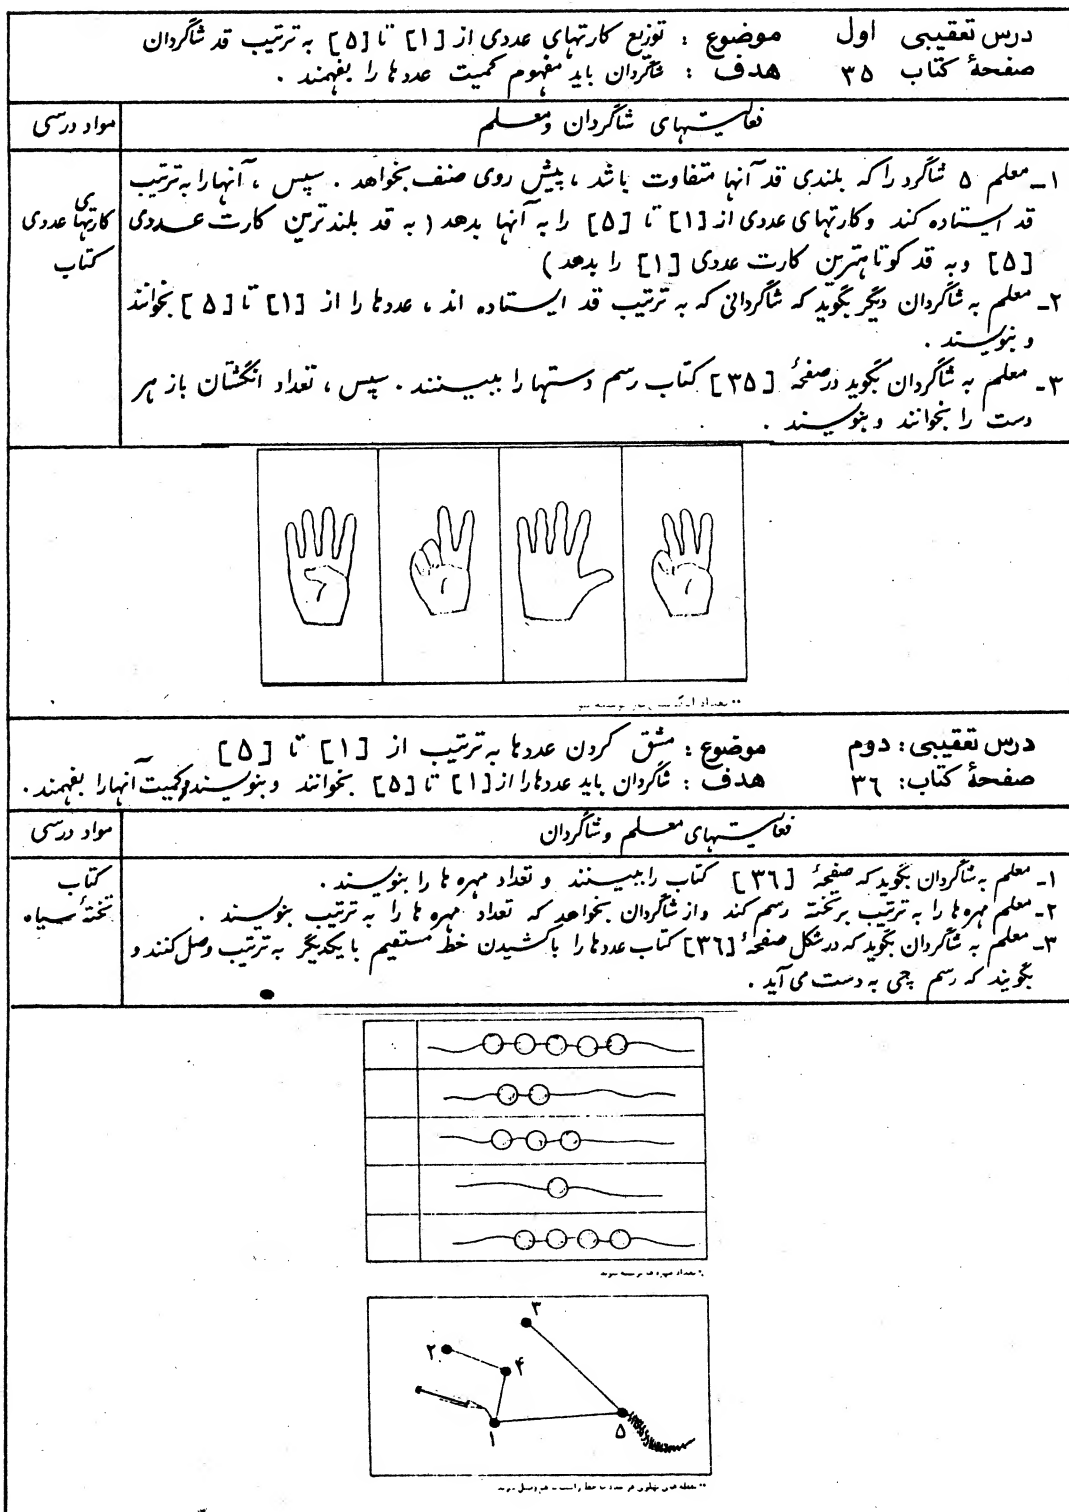 درس تعقیبی اول موضوع : توزیع کارتهای عددی از [۱] تا [۵] به ترتیب قد شاگردان
صفحهٔ کتاب ۳۵ هدف : شاگردان باید مفهوم کمیت عددها را بفهمند .
فعالیتهای شاگردان ومعلم
مواد درسی
۱- معلم ۵ شاگرد را که بلندی قد آنها متفاوت باشد ، پیش روی صنف بخواهد . سپس ، آنها را به ترتیب
قد ایستاده کند و کارتهای عددی از [۱] تا [۵] را به آنها بدهد ( به قد بلندترین کارت عددی
[۵] و به قد کوتاهترین کارت عددی [۱] را بدهد )
۲- معلم به شاگردان دیگر بگوید که شاگردانی که به ترتیب قد ایستاده اند ، عددها را از [۱] تا [۵] بخوانند
و بنویسند .
۳- معلم به شاگردان بگوید درصفحهٔ [۳۵] کتاب رسم دستها را ببینند . سپس ، تعداد انگشتان باز هر
دست را بخوانند و بنویسند .
کارتهای عددی
کتاب
درس تعقیبی : دوم موضوع : مشق کردن عددها به ترتیب از [۱] تا [۵]
صفحهٔ کتاب : ۳۶ هدف : شاگردان باید عددها را از [۱] تا [۵] بخوانند و بنویسند وکمیت آنها را بفهمند .
فعالیتهای معلم و شاگردان
مواد درسی
۱- معلم به شاگردان بگوید که صفحهٔ [۳۶] کتاب را ببینند و تعداد مهره ها را بنویسند .
۲- معلم مهره ها را به ترتیب بر تخته رسم کند و از شاگردان بخواهد که تعداد مهره ها را به ترتیب بنویسند .
۳- معلم به شاگردان بگوید که در شکل صفحهٔ [۳۶] کتاب عددها را با کشیدن خط مستقیم با یکدیگر به ترتیب وصل کنند و
بگویند که رسم چی به دست می آید .
کتاب
تختهٔ سیاه
تعداد مهره ها نوشته شوند
۳
۲
۴
۱
۵